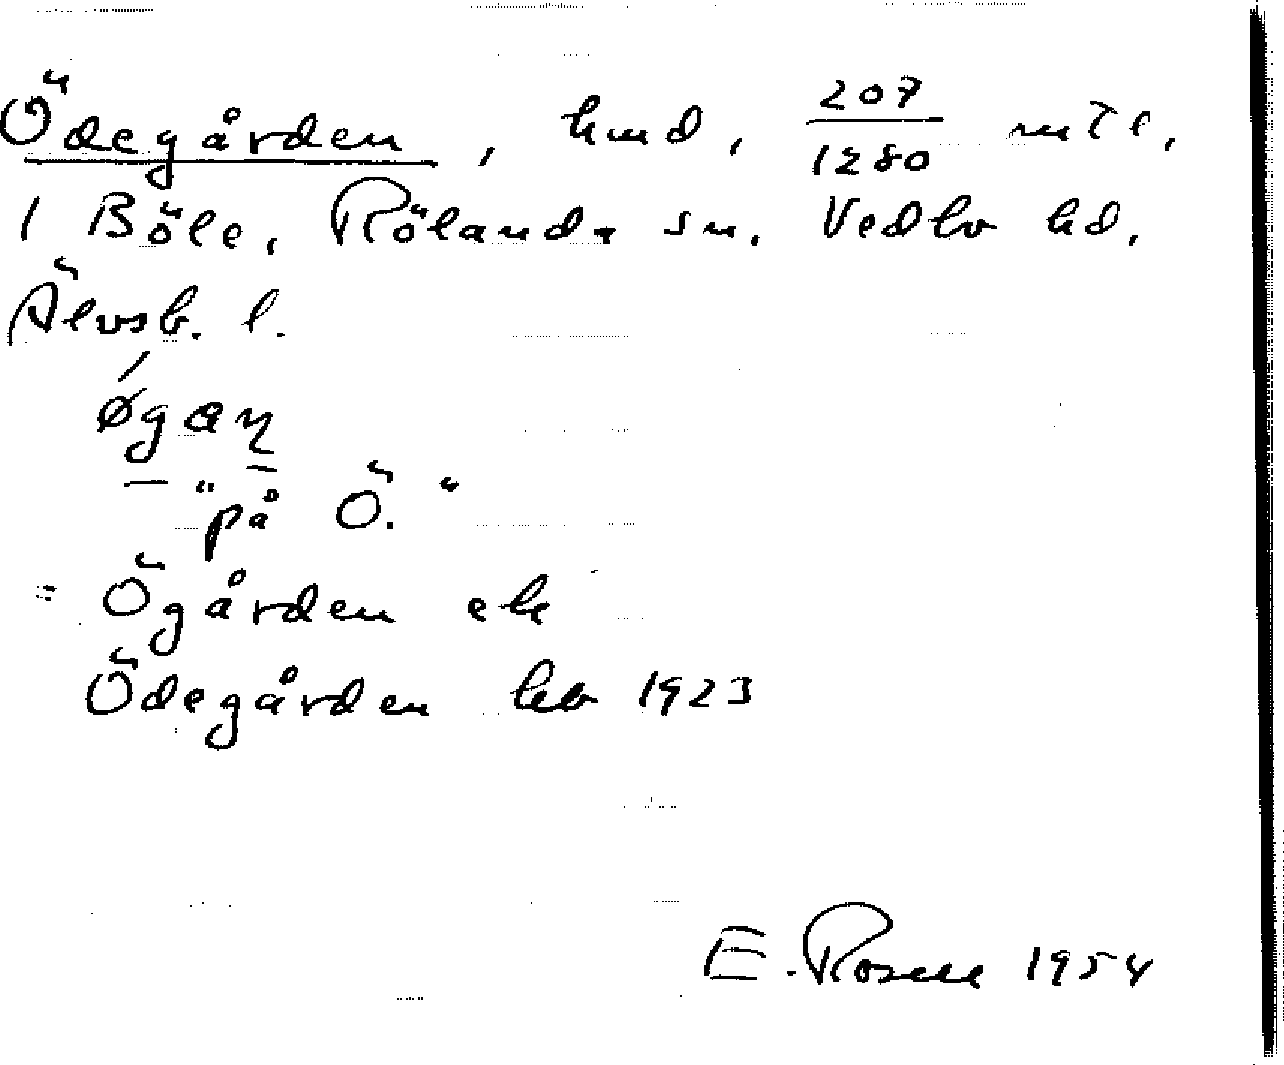 Ödegården, hmd, 207/1280 mtl,
1 Böle, Rölanda sn. Vedbo hd,
Älvsb. l.
ǿgaɳ
— "på Ö."
= Ögården ek
Ödegården keb 1923
E. Rosell 1954